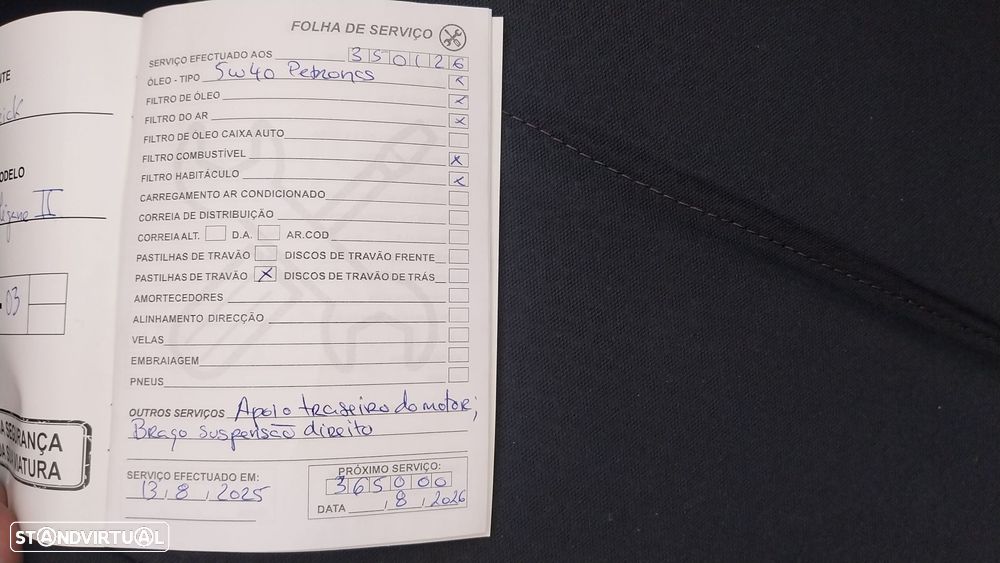 FOLHA DE SERVIÇO
SERVIÇO EFECTUADO AOS 350126
ÓLEO - TIPO 5w40 Petronas x
FILTRO DE ÓLEO x
FILTRO DO AR x
FILTRO DE ÓLEO CAIXA AUTO
FILTRO COMBUSTÍVEL x
FILTRO HABITÁCULO x
CARREGAMENTO AR CONDICIONADO
CORREIA DE DISTRIBUIÇÃO
CORREIA ALT. D.A. AR.COD
PASTILHAS DE TRAVÃO DISCOS DE TRAVÃO FRENTE
PASTILHAS DE TRAVÃO X DISCOS DE TRAVÃO DE TRÁS
AMORTECEDORES
ALINHAMENTO DIRECÇÃO
VELAS
EMBRAIAGEM
PNEUS
OUTROS SERVIÇOS Apoio traseiro do motor;
Braço suspensão direito
SERVIÇO EFECTUADO EM:
13, 8, 2025
PRÓXIMO SERVIÇO:
365000
DATA , 8 , 2026
NTE
ODELO
II
03
A SEGURANÇA
VIATURA
STANDVIRTUAL